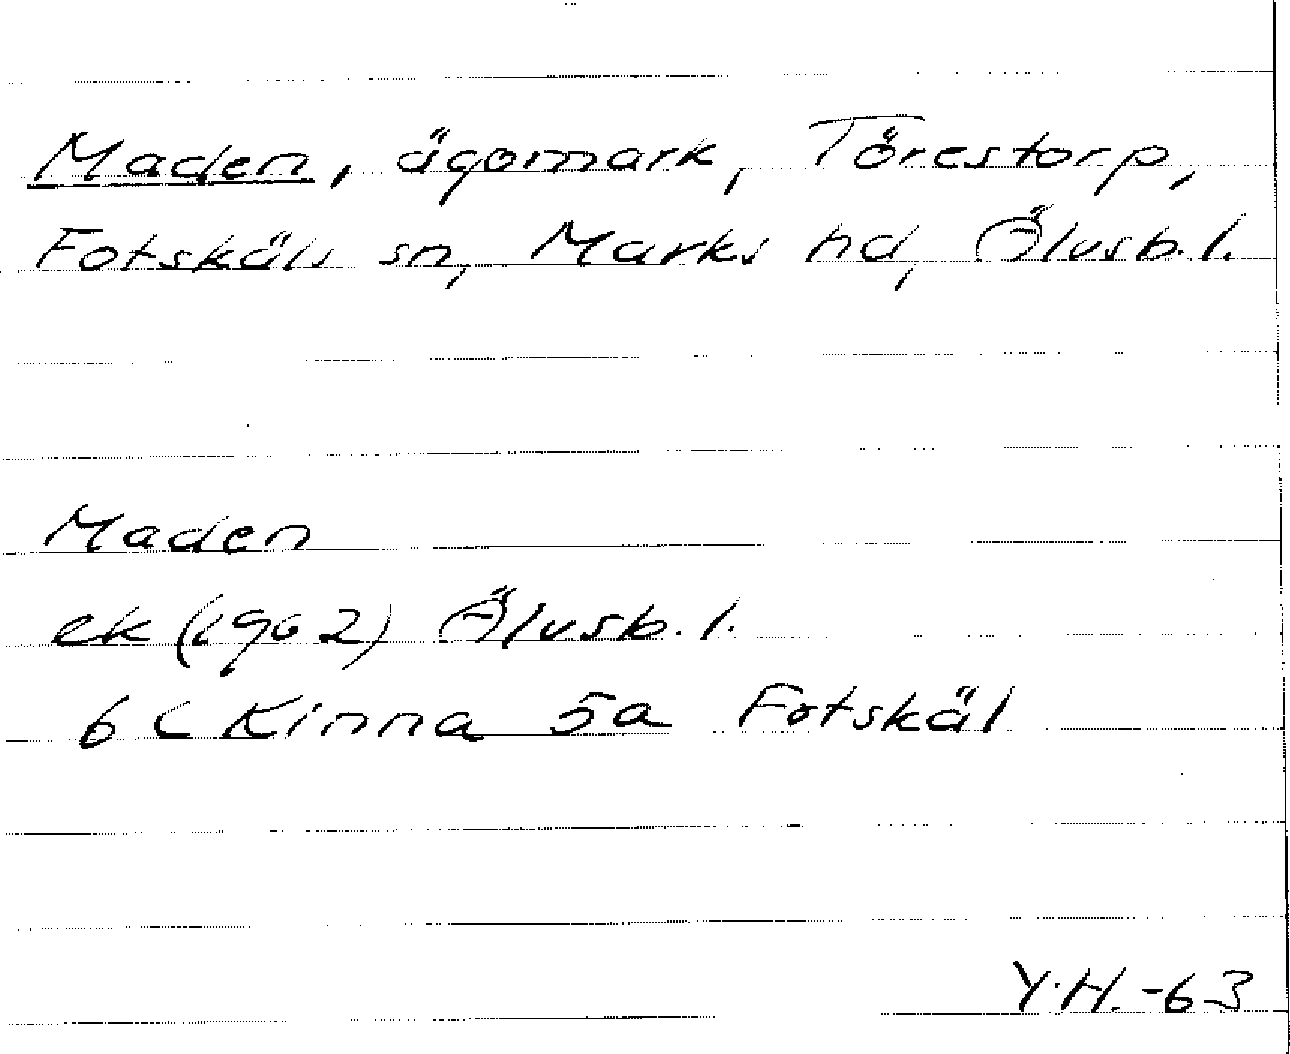 Maden, ägomark, Törestorp,
Fotskäls sn, Marks hd, Älvsb.l.
Maden
ek (1962) Älvsb.l.
6 C Kinna 5a Fotskäl
Y.H.-63